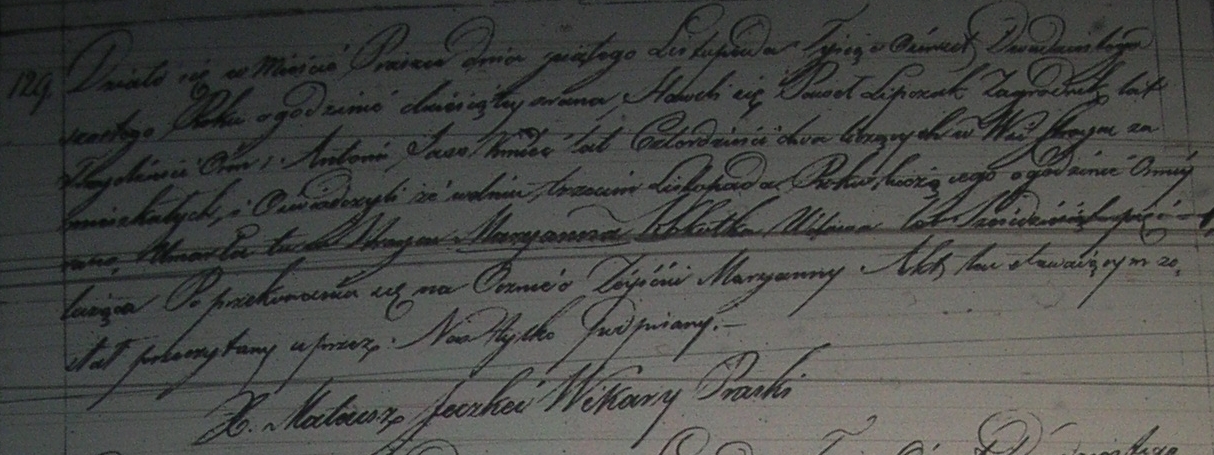 129. Działo się w Mieście Praszce dnia piątego Listopada Tysiąc Ośmset Dwudziestego
szóstego Roku o godzinie dziesiątey zrana, Stawili się Paweł Lipczak Zagrodnik lat
Trzydzieście Ośm, i Antoni Jaso kmieć lat Czterdzieści dwa liczących w Wsi Strojcu za
mieszkałych, i Oswiadczyli że wdniu trzecim Listopada Roku bieżącego o godzinie Osmey
rano, Umarła tu w Stroycu Maryanna Wdowa lat Sześćdziesiąt pięć
licząca Po przekonaniu się na Ocznie o Zeyściu Maryanny Akt ten stawaiącym zo
stał przeczytany i przez Nas tylko Podpisany.—
X. Mateusz Wikary Praski